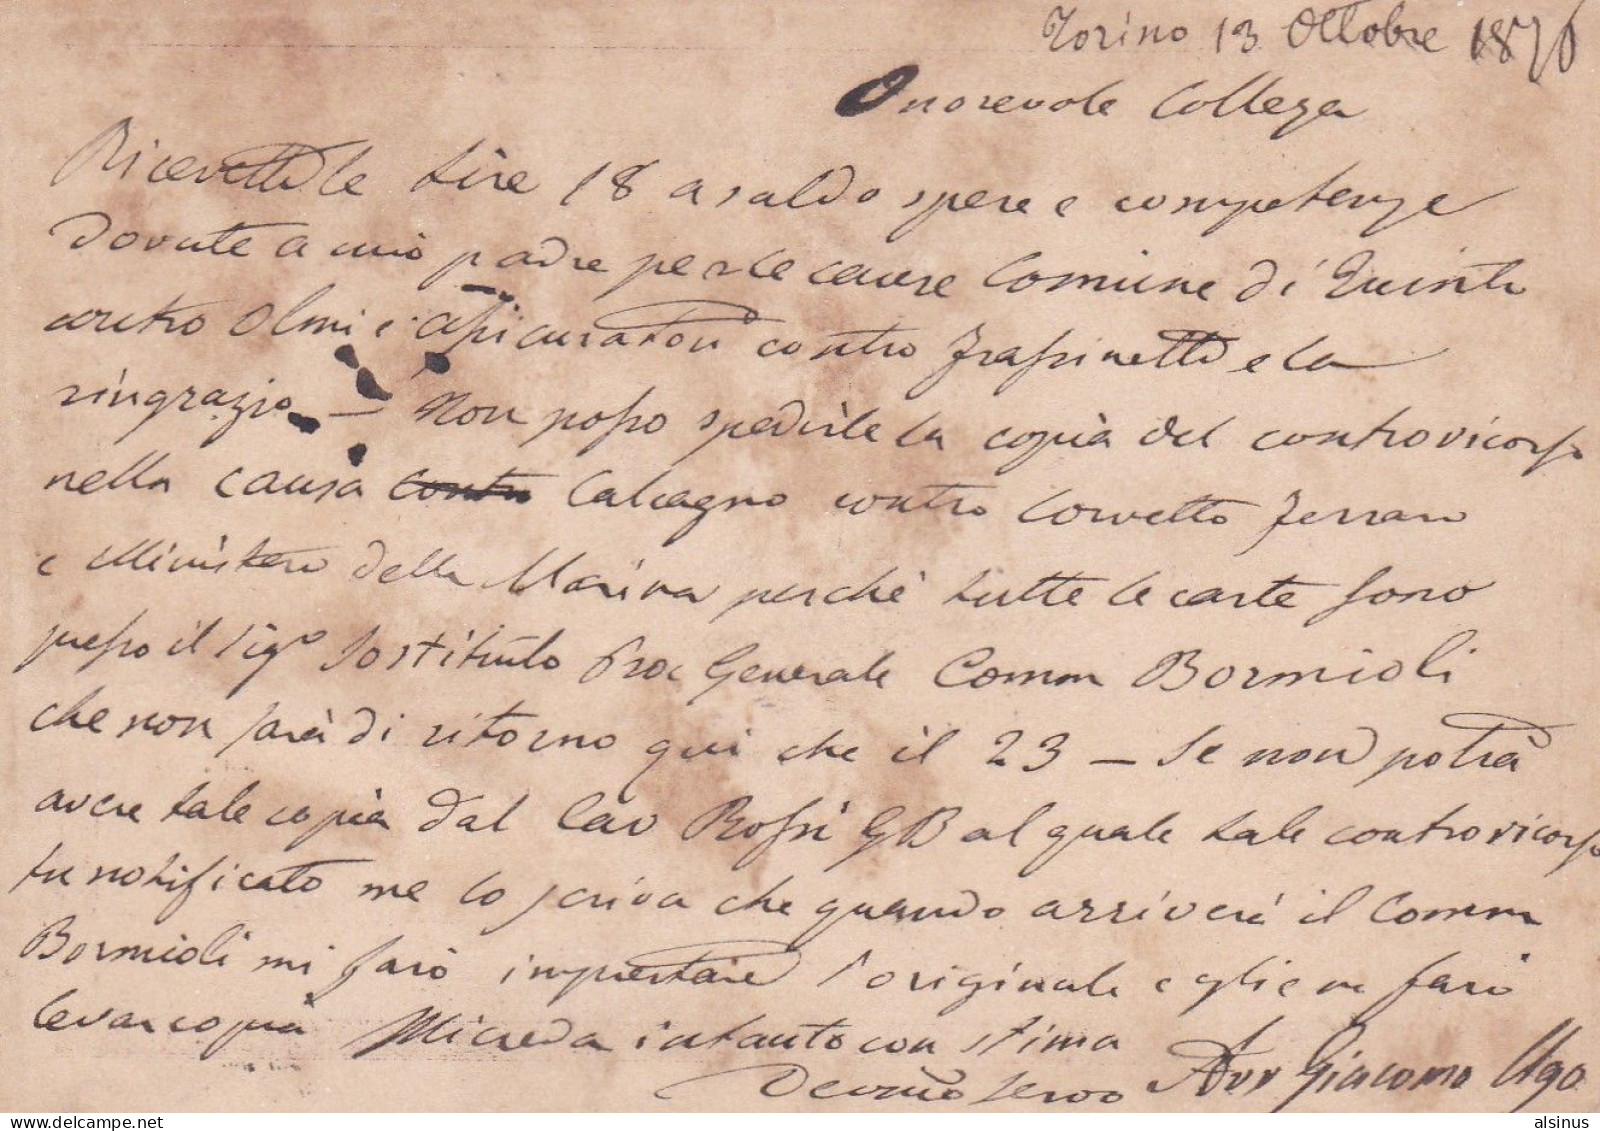 Torino 13 Ottobre 1876
Onorevole Collega
Ricevetti le lire 18 a saldo spese e competenze
dovute a mio padre per le cause Comune di Quinto
contro Olmi e Assicuratori contro Frassinetti e la
ringrazio – Non posso spedirle la copia del controricorso
nella causa contro Calcagno contro Corvetto Ferraro
e Ministero della Marina perchè tutte le carte sono
presso il Sigº Sostituto Proc Generale Comm Bormioli
che non sarà di ritorno qui che il 23 – Se non potrà
avere tale copia dal Cav Rossi GB al quale tale controricorso
fu notificato me lo scriva che quando arriverà il Comm
Bormioli mi farò imprestare l'originale e gliene farò
levar copia Mi creda intanto con stima
Devmo servo Avv Giacomo Ugo
alsinus